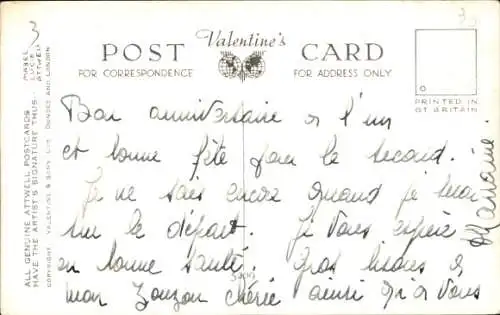 3
Valentine's
POST CARD
FOR CORRESPONDENCE
FOR ADDRESS ONLY
PRINTED IN
GT BRITAIN
ALL GENUINE ATTWELL POSTCARDS
HAVE THE ARTIST'S SIGNATURE THUS:-
MABEL
LUCIE
ATTWELL
COPYRIGHT. VALENTINE & SONS LTD. DUNDEE AND LONDON
Bon anniversaire à l'un
et bonne fête pour le second.
Je ne sais encore quand je
sur le départ. Je vous espère
en bonne santé. Gros bisous à
mon Zouzou chérie ainsi qu'à vous